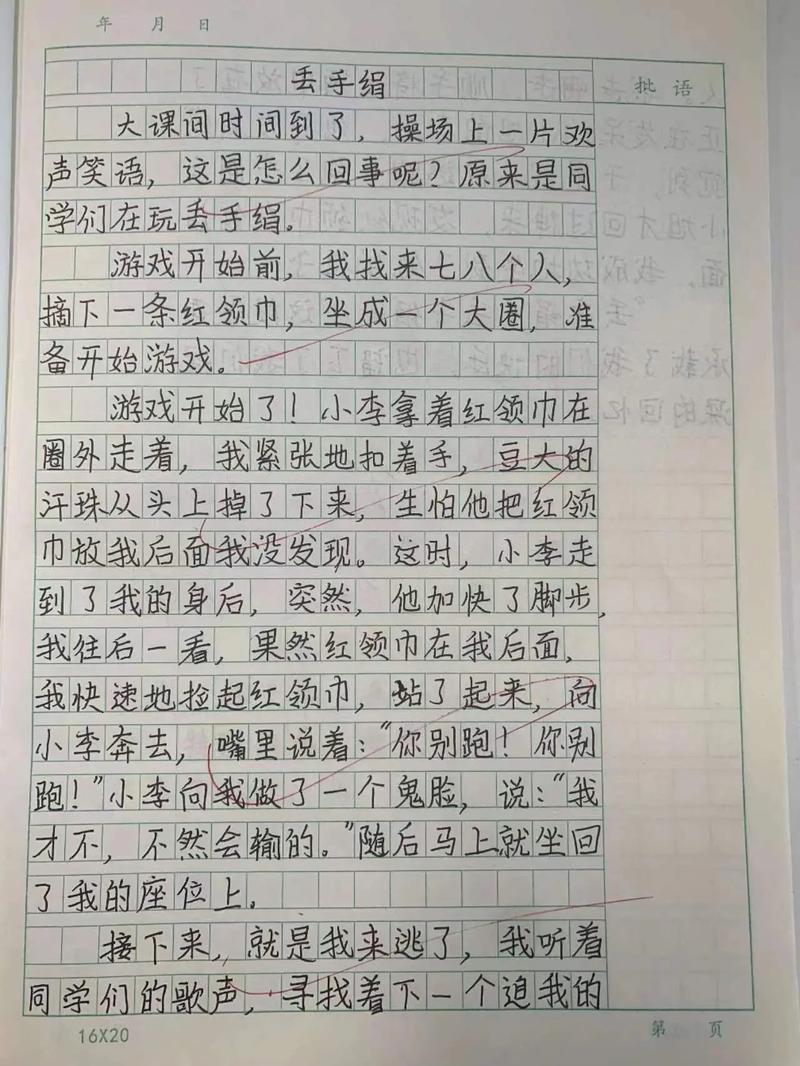 年 月 日
批 语
丢手绢
大课间时间到了，操场上一片欢
声笑语，这是怎么回事呢？原来是同
学们在玩丢手绢。
游戏开始前，我找来七八个人，
摘下一条红领巾，坐成一个大圈，准
备开始游戏。
游戏开始了！小李拿着红领巾在
圈外走着，我紧张地扣着手，豆大的
汗珠从头上掉了下来，生怕他把红领
巾放我后面我没发现。这时，小李走
到了我的身后，突然，他加快了脚步，
我往后一看，果然红领巾在我后面，
我快速地捡起红领巾，站了起来，向
小李奔去，嘴里说着：“你别跑！你别
跑！”小李向我做了一个鬼脸，说：“我
才不，不然会输的。”随后马上就坐回
了我的座位上。
接下来，就是我来逃了，我听着
同学们的歌声，寻找着下一个追我的
16X20
第 页